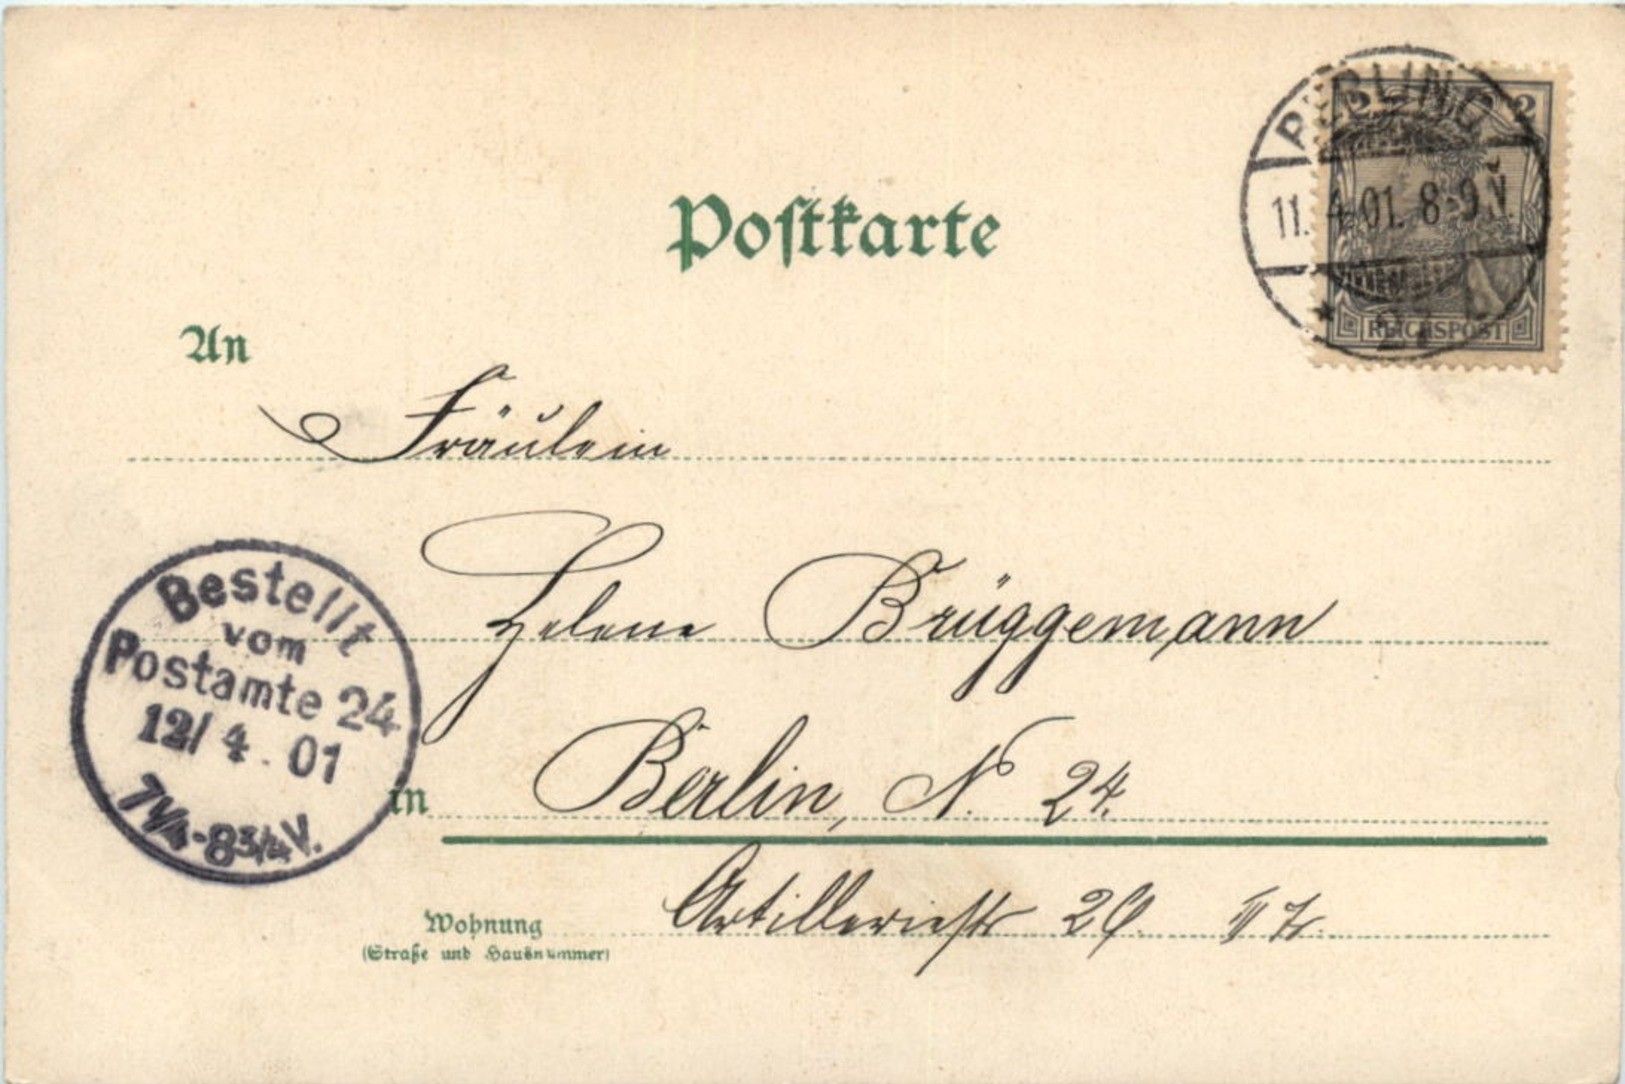 BERLIN
2 2
11. 4. 01. 8-9 V.
* 27
REICHSPOST
Postkarte
An
Fräulein
Helene Brüggemann
Bestellt
vom
Postamte 24
12/ 4. 01
7 1/4-8 3/4 V.
in Berlin, N. 24.
Wohnung Artilleriestr
(Straße und Hausnummer)